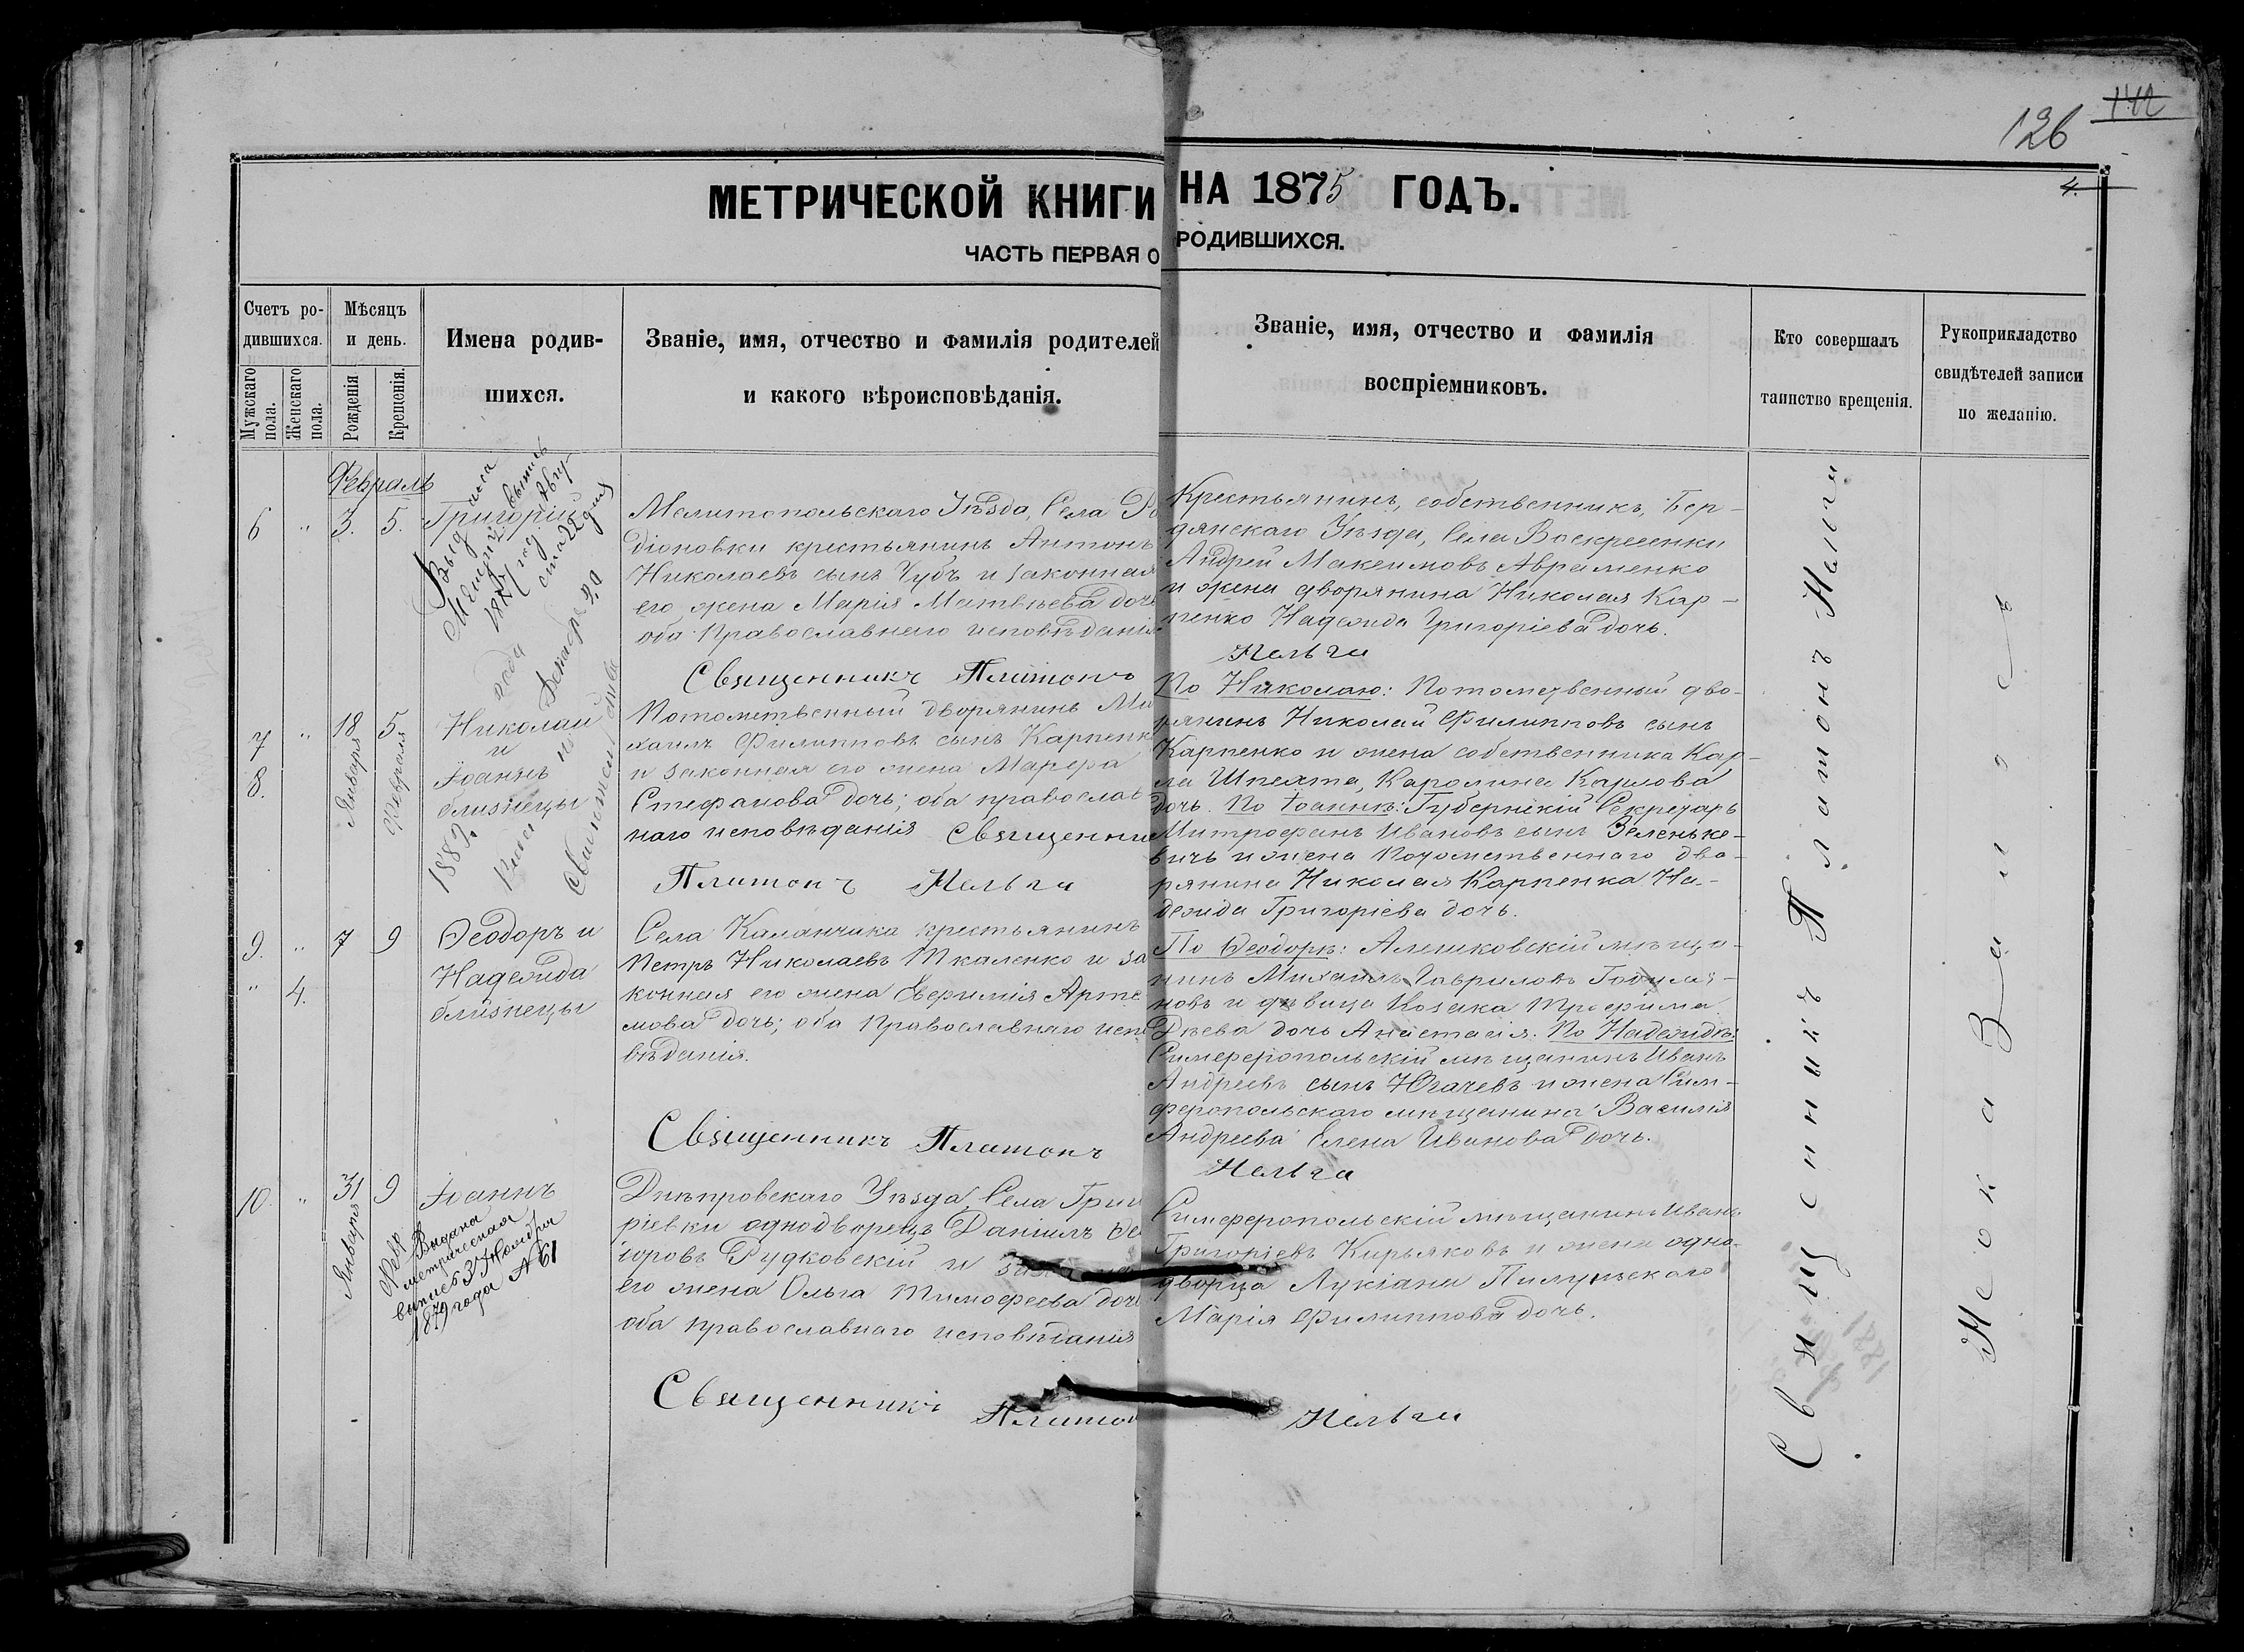 142
126
4.
МЕТРИЧЕСКОЙ КНИГИ НА 1875 ГОДЪ.
ЧАСТЬ ПЕРВАЯ О РОДИВШИХСЯ.
Счетъ ро-
дившихся.
Мужскаго пола.
Женскаго пола.
Мѣсяцъ
и день.
Рожденія
Крещенія.
Имена родив-
шихся.
Званіе, имя, отчество и фамилія родителей
и какого вѣроисповѣданія.
Званіе, имя, отчество и фамилія
воспріемниковъ.
Кто совершалъ
таинство крещенія.
Рукоприкладство
свидѣтелей записи
по желанію.
Февраль
6 " 3. 5. Григорій
Мелитопольскаго Уѣзда, Села Ро
діоновки крестьянинъ Антонъ
Николаевъ сынъ Чубъ и законная
его жена Марія Матвѣева дочь
оба Православнаго исповѣданія
Священникъ Платонъ
Крестьянинъ, собственникъ, Бер-
дянскаго Уѣзда, Села Воскресенки
Андрей Максимовъ Авраменко
и жена дворянина Николая Кар-
пенко Надежда Григоріева дочь.
7 " 18 Января 5 Февраля Николай
и
8. Іоаннъ
близнецы
Потомственный дворянинъ Ми
хаилъ Филипповъ сынъ Карпенко
и законная его жена Марфа
Стефанова дочь; оба православ
наго исповѣданія Священник
Платонъ
По Николаю: Потомственный дво-
рянинъ Николай Филипповъ сынъ
Карпенко и жена собственника Кар-
ла Каролина Карлова
дочь. По Іоаннѣ: Губернскій Секретарь
Митрофанъ Ивановъ сынъ Зеленке-
вичъ и жена Потомственнаго дво-
рянина Николая Карпенка На-
дежда Григоріева дочь.
9. " 7 9 Ѳеодоръ и
" 4. Надежда
близнецы
Села Каланчака крестьянинъ
Петръ Николаевъ Ткаленко и за
конная его жена Евфимія Арте
мова дочь; оба Православнаго испо
вѣданія.
Священникъ Платонъ
По Ѳеодорѣ: Алешковскій мѣща-
нинъ Михаилъ Гавриловъ
новъ и дѣвица Козака Трофима
дочь Анастасія. По Надеждѣ:
Симферопольскій мѣщанинъ Иванъ
Андреевъ сынъ Югачевъ и жена Сим-
феропольскаго мѣщанина Василія
Андреева Елена Иванова дочь.
10. " 31 Января 9 Іоаннъ
Выдана
метрическая
1879 года №61
Днѣпровскаго Уѣзда Села Григо
ріевки однодворецъ Даніилъ Ѳе
доровъ Рудковскій и
его жена Ольга Тимофеева дочь
оба православнаго исповѣданія
Священникъ Платон
Симферопольскій мѣщанинъ Иванъ
Григоріевъ Кирьяковъ и жена одно-
дворца Лукіана
Марія Филиппова дочь.
Священникъ Платонъ